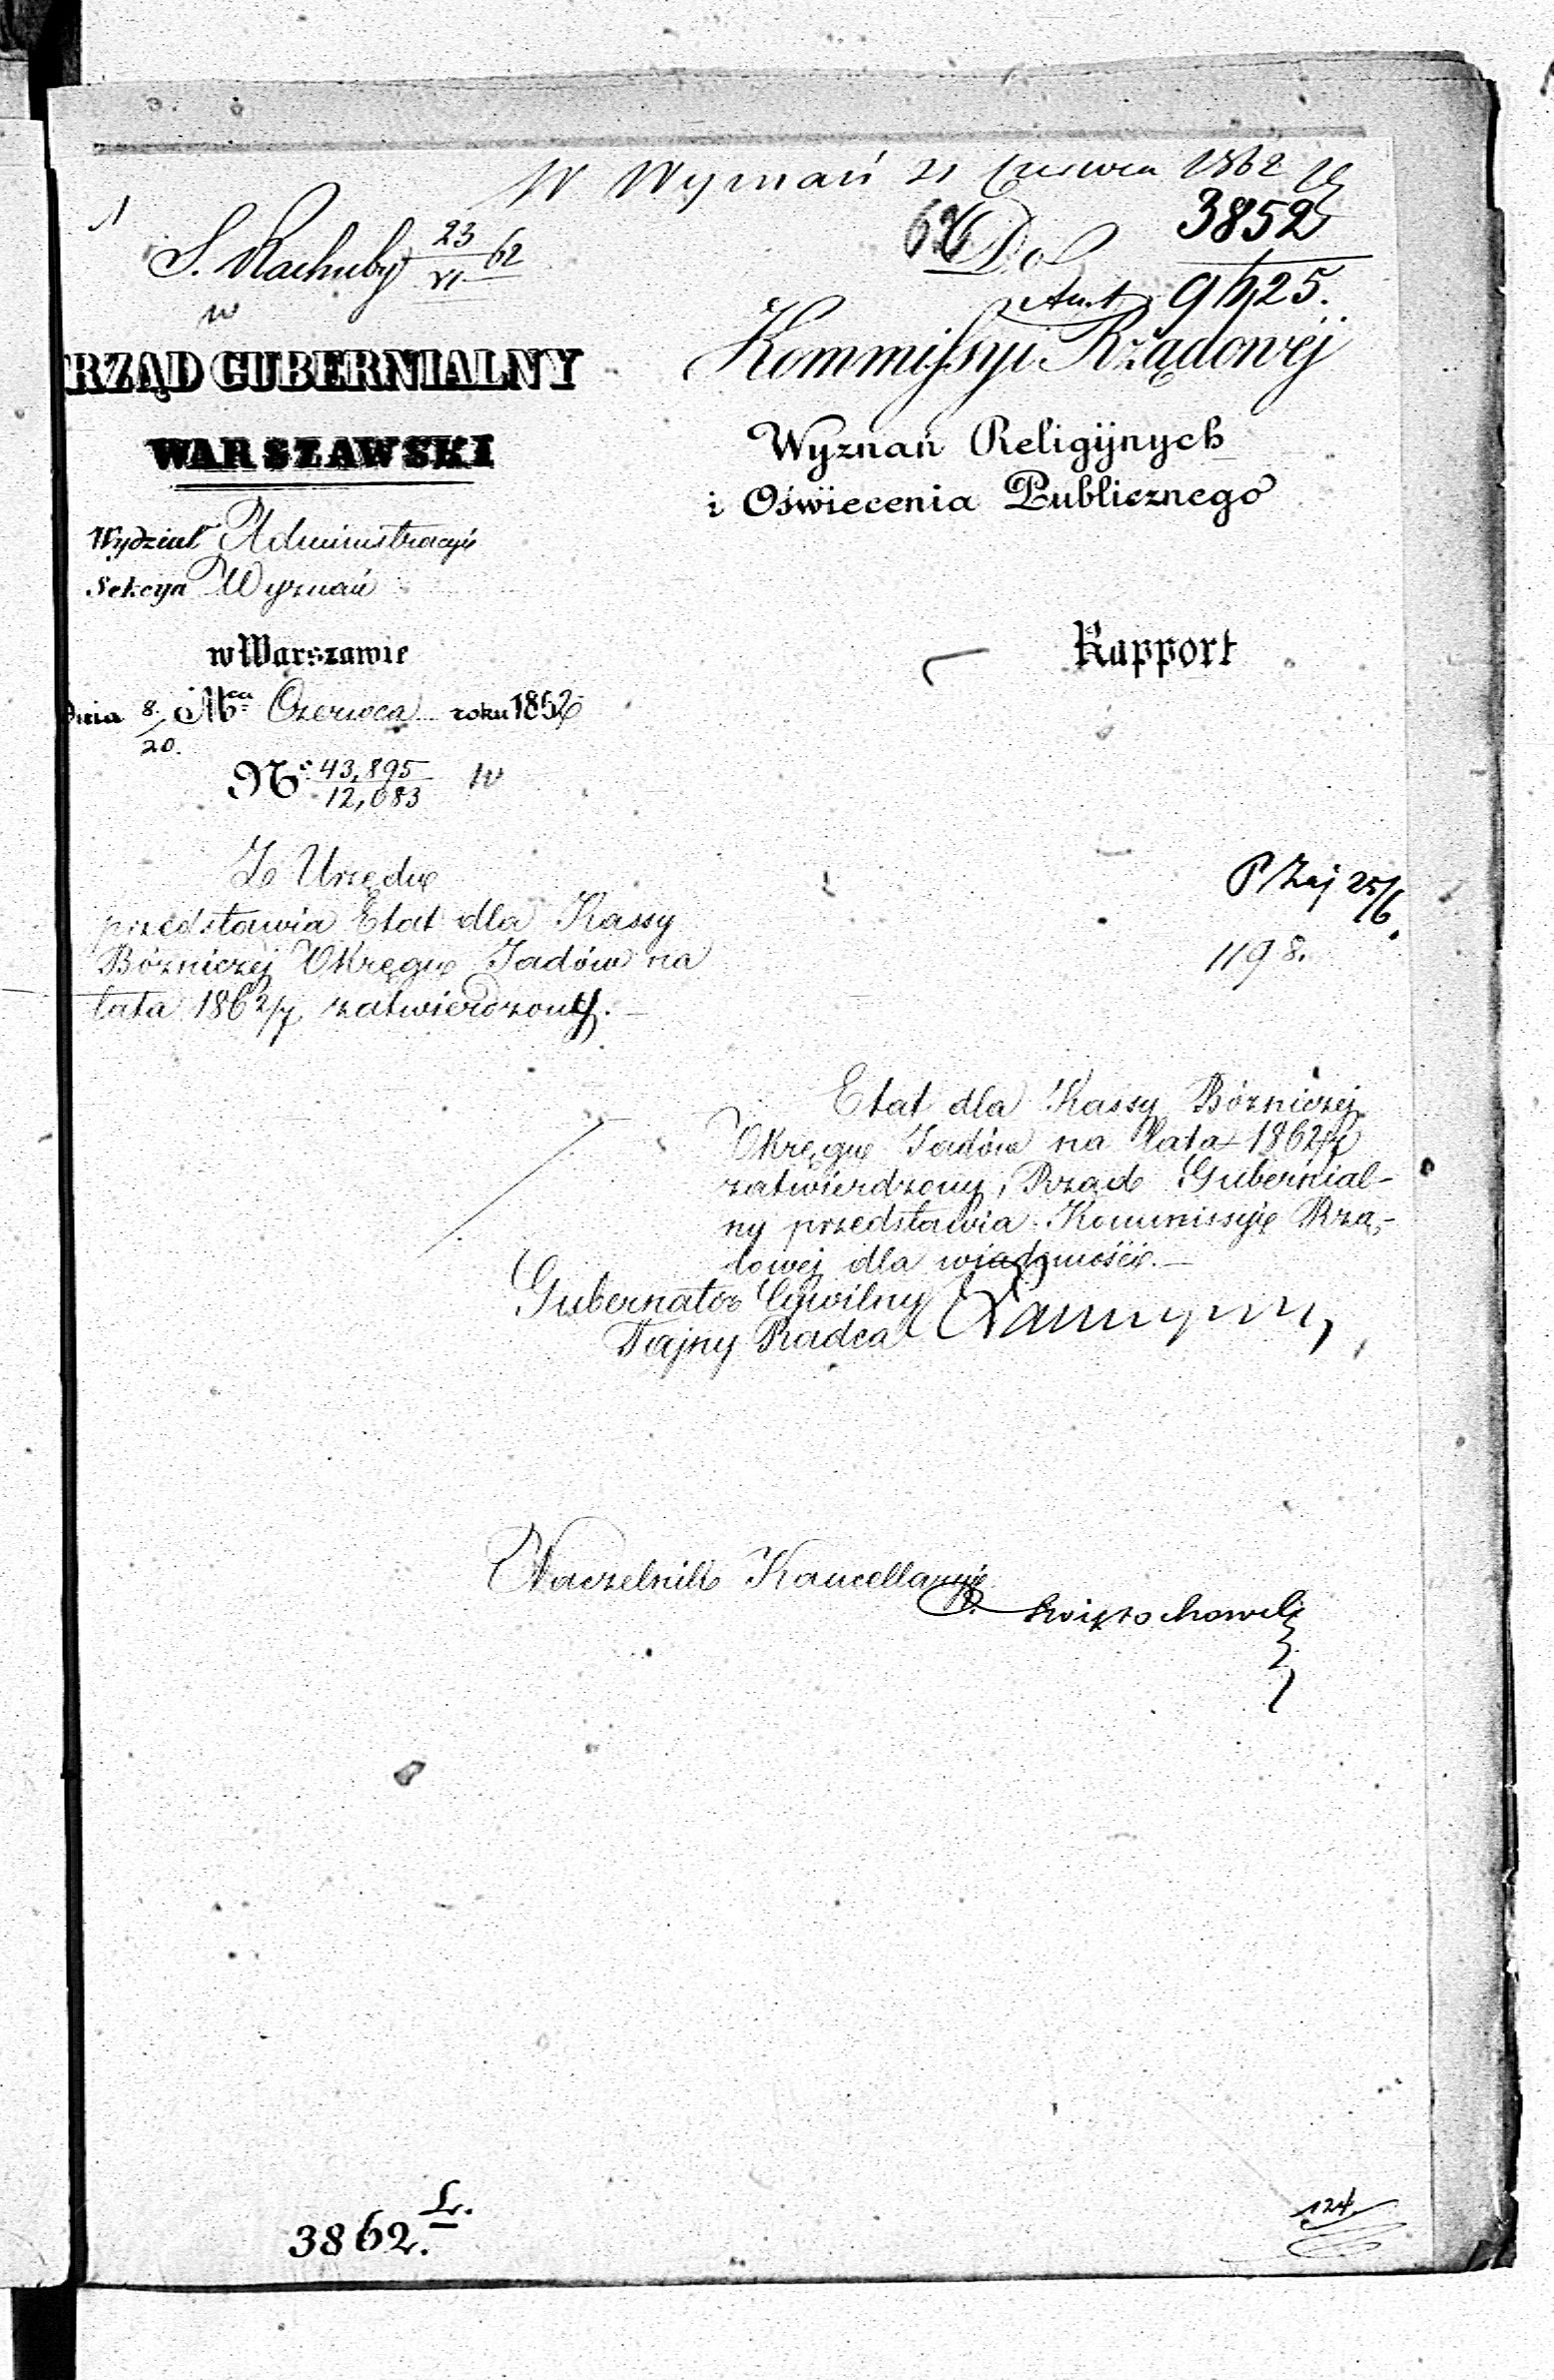 W Wyznań 21 Czerwca 1862
S. Rachuby 23/VI 62
w
RZĄD GUBERNIALNY
WARSZAWSKI
Wydział Administracyi
Sekcya Wyznań
w Warszawie
Dnia 8/20. Mca Czerwca roku 1862
No 43,895/12,083 W
Z Urzędu
przedstawia Etat dla Kassy
Bóżniczej Okręgu Jadów na
lata 1862/4 zatwierdzony.
62 Do
3852
9425.
Kommissyi Rządowéj
Wyznań Religijnych
i Oświecenia Publicznego
Rapport
25/6
1198.
Etat dla Kassy Bóżniczej
Okręgu Jadów na lata 1862/4
zatwierdzony, Rząd Gubernial-
ny przedstawia Kommissyi Rzą-
dowej dla wiadomości.
Gubernator Cywilny
Tajny Radca
Naczelnik Kancellaryi
Świętochowski
3862. L.
124